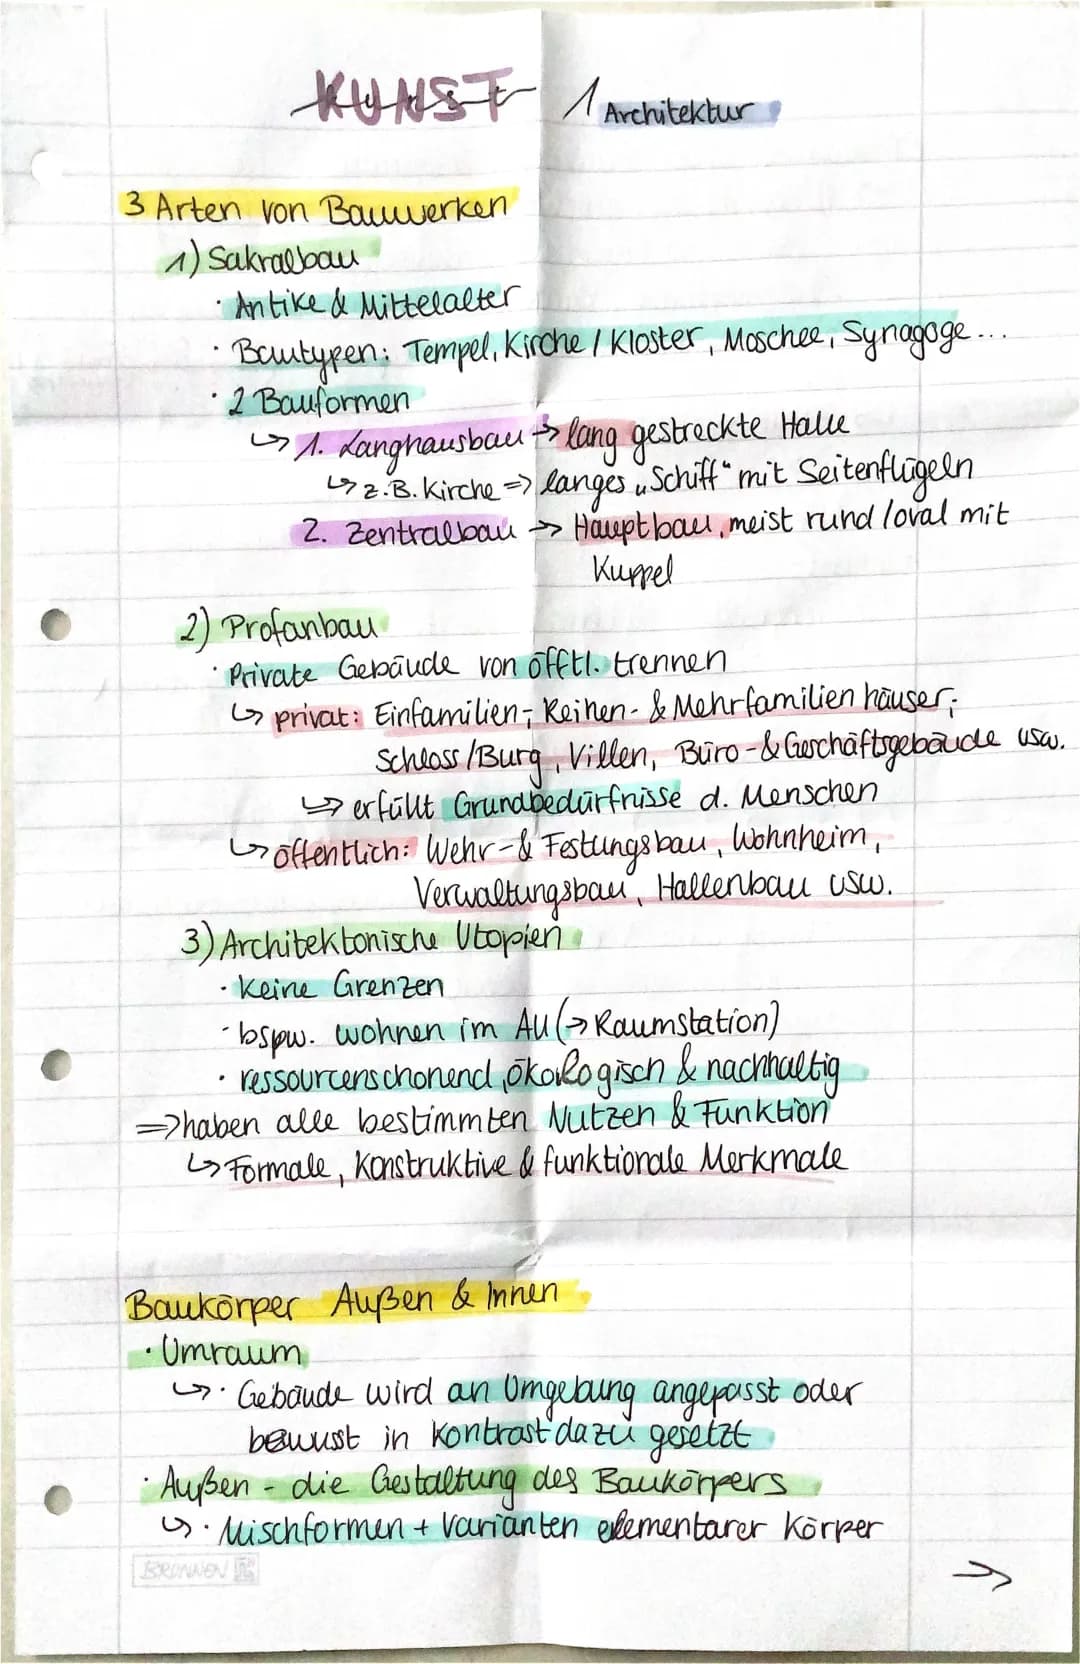 KUNST 1 Architektur
3 Arten von Bauwerken
1) Sakralbau
· Antike & Mittelalter
· Bautypen: Tempel, Kirche / Kloster, Moschee, Synagoge...
· 2 Bauformen
↳ 1. Langhausbau → lang gestreckte Halle
↳ z.B. Kirche => langes „Schiff“ mit Seitenflügeln
2. Zentralbau → Hauptbau, meist rund / oval mit
Kuppel
2) Profanbau
· Private Gebäude von öfftl. trennen
↳ privat: Einfamilien-, Reihen- & Mehrfamilienhäuser;
Schloss/Burg, Villen, Büro-& Geschäftsgebäude usw.
↳ erfüllt Grundbedürfnisse d. Menschen
↳ öffentlich: Wehr-& Festungsbau, Wohnheim,
Verwaltungsbau, Hallenbau usw.
3) Architektonische Utopien
· Keine Grenzen
· bspw. wohnen im All (→ Raumstation)
· ressourcenschonend, ökologisch & nachhaltig
=> haben alle bestimmten Nutzen & Funktion
↳ Formale, Konstruktive & funktionale Merkmale
Baukörper Außen & Innen
· Umraum
↳ · Gebäude wird an Umgebung angepasst oder
bewusst in Kontrast dazu gesetzt
· Außen - die Gestaltung des Baukörpers
↳ · Mischformen + Varianten elementarer Körper
BRUNNEN
→